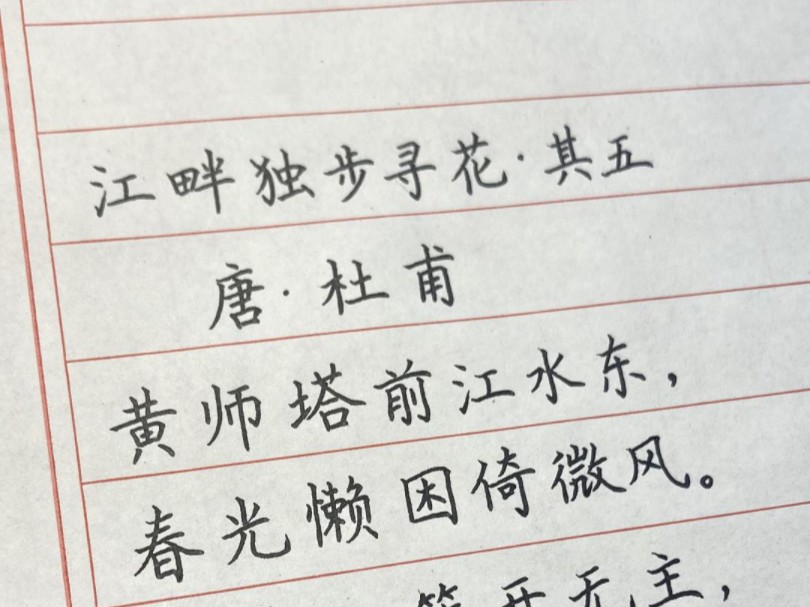 江畔独步寻花·其五
唐·杜甫
黄师塔前江水东，
春光懒困倚微风。
开无主，